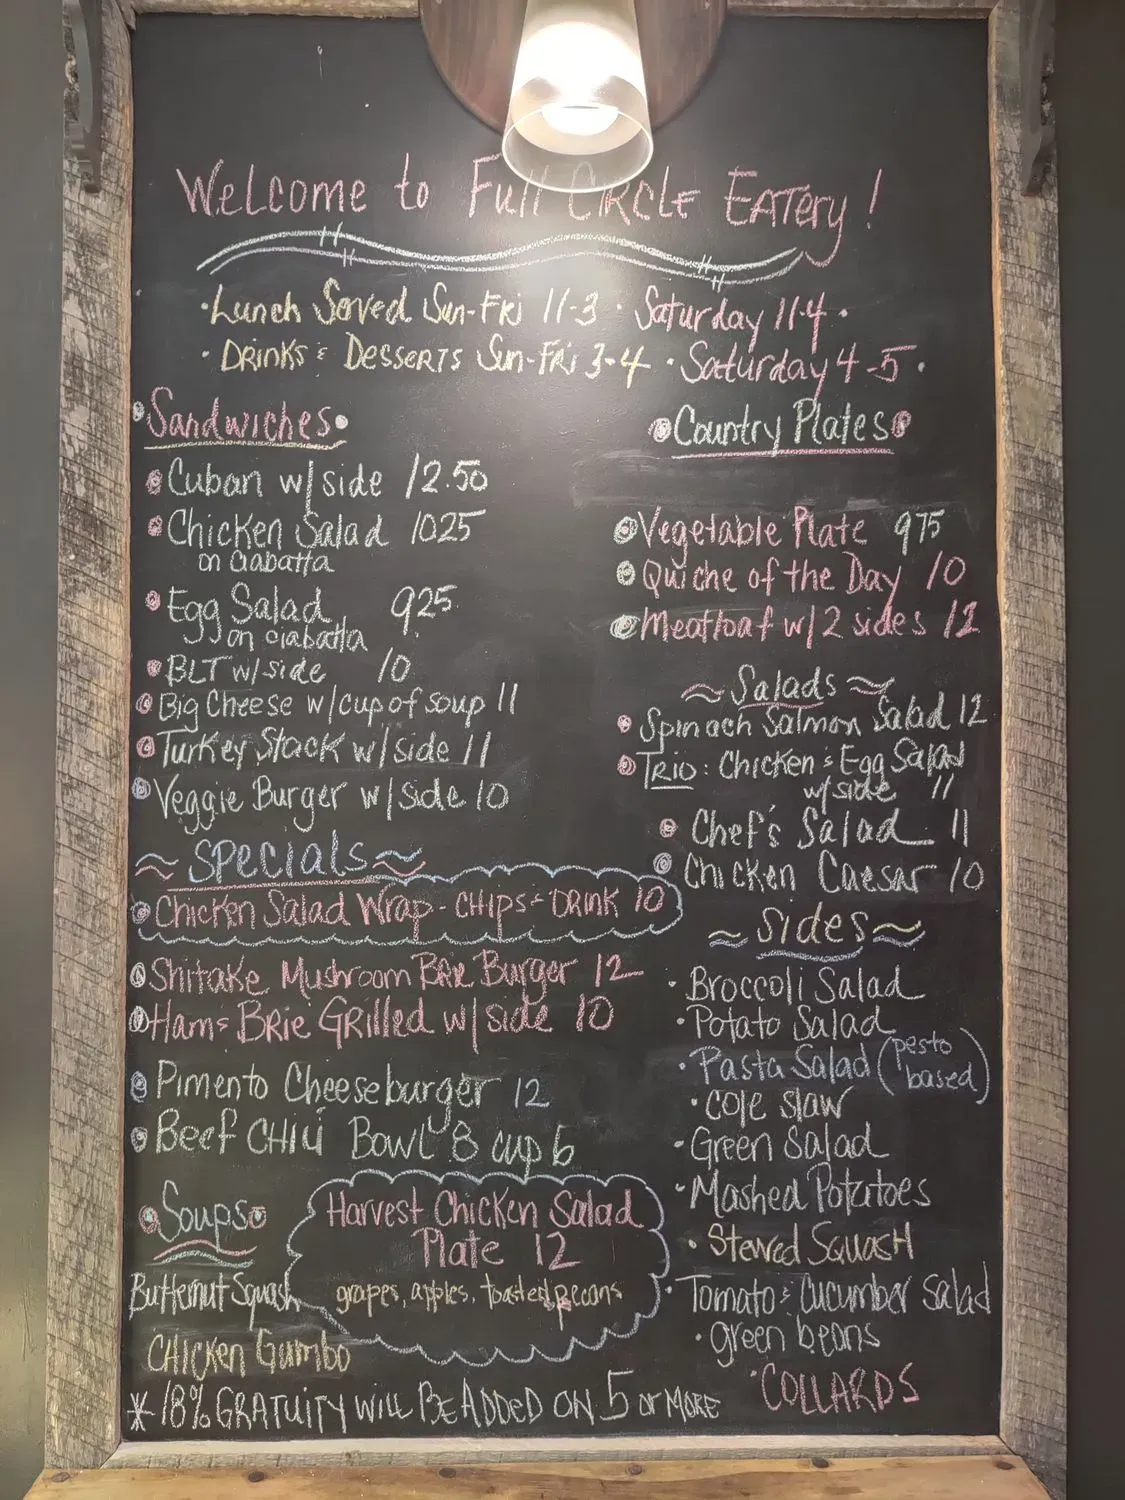 Welcome to Full Circle Eatery!
· Lunch Served Sun-Fri 11-3 · Saturday 11-4 ·
· Drinks & Desserts Sun-Fri 3-4 · Saturday 4-5 ·
• Sandwiches •
• Cuban w/side 12.50
• Chicken Salad 1025
on ciabatta
• Egg Salad 925
on ciabatta
• BLT w/side 10
• Big Cheese w/cup of soup 11
• Turkey Stack w/side 11
• Veggie Burger w/side 10
~ Specials ~
• Chicken Salad Wrap - Chips & Drink 10
• Shitake Mushroom Brie Burger 12
• Ham & Brie Grilled w/side 10
• Pimento Cheeseburger 12
• Beef Chili Bowl 8 cup 6
• Soups •
Butternut Squash
Chicken Gumbo
Harvest Chicken Salad
Plate 12
grapes, apples, toasted pecans
• Country Plates •
• Vegetable Plate 975
• Quiche of the Day 10
• Meatloaf w/2 sides 12
~ Salads ~
• Spinach Salmon Salad 12
• Trio: Chicken & Egg Salad
w/side 11
• Chef's Salad 11
• Chicken Caesar 10
~ Sides ~
· Broccoli Salad
· Potato Salad
· Pasta Salad (pesto
based)
· Cole slaw
· Green Salad
· Mashed Potatoes
· Stewed Squash
· Tomato & Cucumber Salad
· green beans
· Collards
* 18% Gratuity will be added on 5 or more